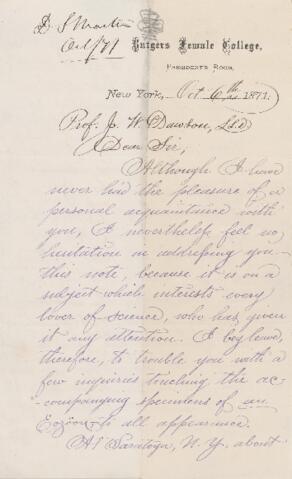 D S Martin
Oct/71
Rutgers Female College,
President's Room.
New York, Oct 6th 1871.
Prof. J. W. Dawson, LL.D.
Dear Sir,
Although I have
never had the pleasure of a
personal acquaintance with
you, I nevertheless feel no
hesitation in addressing you
this note, because it is on a
subject which interests every
lover of science, who has given
it any attention. I beg leave,
therefore, to trouble you with a
few inquiries touching the ac-
companying specimens of an
Eozoon to all appearance.
At Saratoga, N.Y. about